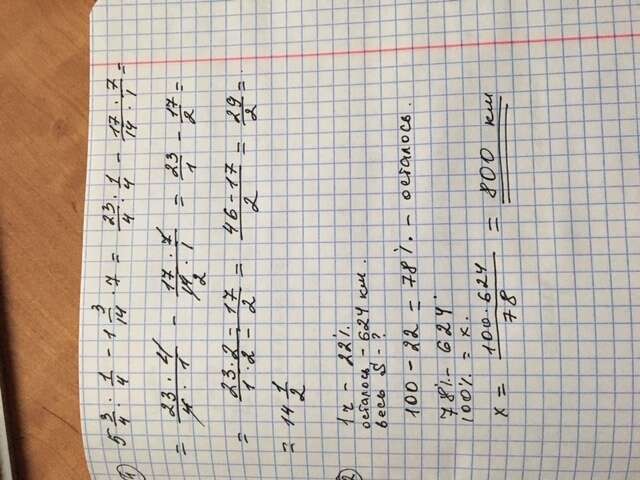 1) 5 3/4 : 1/4 - 1 3/14 · 7 = 23/4 : 1/4 - 17/14 · 7/1 =
= 23 · 4/4 · 1 - 17 · 7/14 · 1 2 = 23/1 - 17/2 =
= 23·2 - 17/1·2 - 2 = 46-17/2 = 29/2 =
= 14 1/2
2 1ч - 22%.
осталось - 624 км.
весь S - ?
100 - 22 = 78% - осталось.
78% - 624
100% = x.
x = 100·624/78 = 800 км